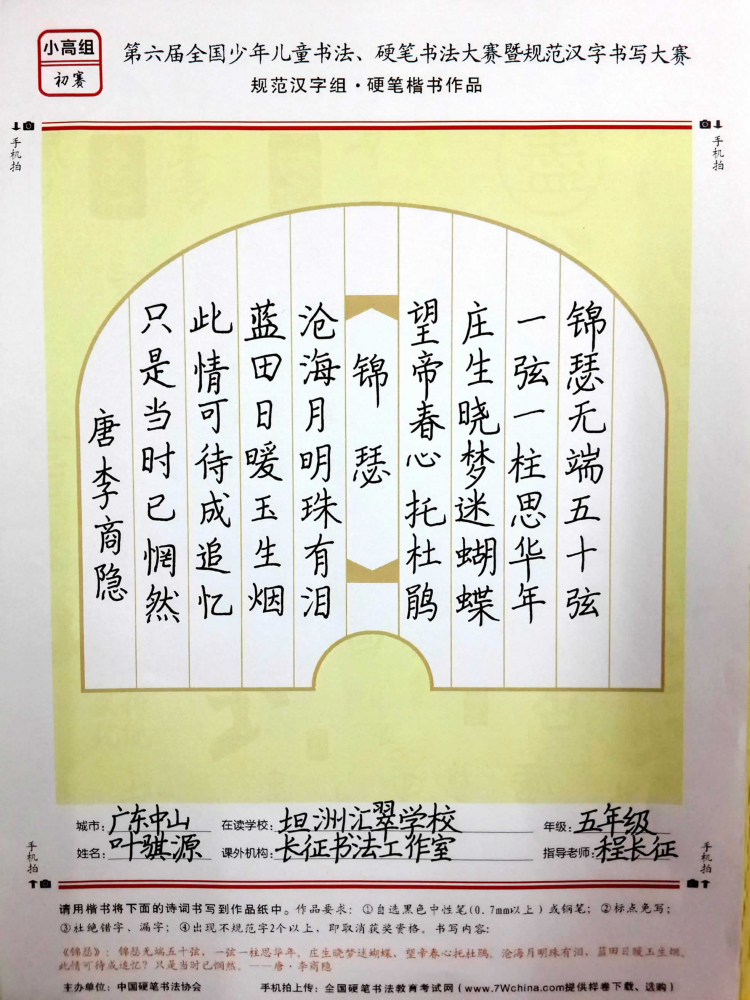 小高组
初赛
第六届全国少年儿童书法、硬笔书法大赛暨规范汉字书写大赛
规范汉字组·硬笔楷书作品
手机拍
手机拍
锦瑟无端五十弦
一弦一柱思华年
庄生晓梦迷蝴蝶
望帝春心托杜鹃
锦瑟
沧海月明珠有泪
蓝田日暖玉生烟
此情可待成追忆
只是当时已惘然
唐李商隐
城市:广东中山 在读学校:坦洲汇翠学校 年级:五年级
姓名:叶骐源 课外机构:长征书法工作室 指导老师:程长征
手机拍
手机拍
请用楷书将下面的诗词书写到作品纸中。作品要求:①自选黑色中性笔(0.7mm以上)或钢笔;②标点免写;
③杜绝错字、漏字;④出现不规范字2个以上,即取消获奖资格。书写内容:
《锦瑟》:锦瑟无端五十弦,一弦一柱思华年。庄生晓梦迷蝴蝶,望帝春心托杜鹃。沧海月明珠有泪,蓝田日暖玉生烟。
此情可待成追忆?只是当时已惘然。——唐·李商隐
主办单位:中国硬笔书法协会 手机拍上传:全国硬笔书法教育考试网(www.7Wchina.com提供样卷下载、选购)